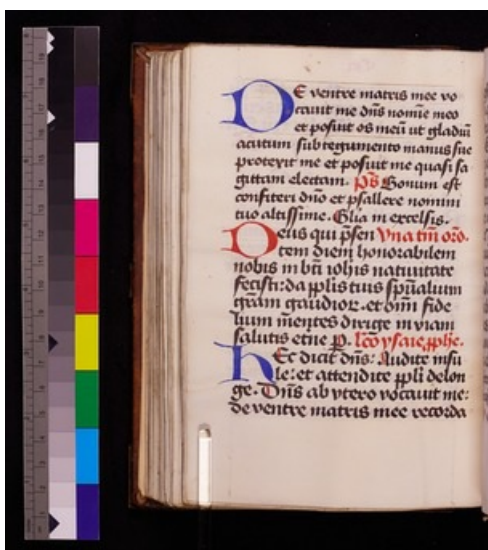 DE ventre matris mee vo
cauit me dñs nomīe meo
et posuit os meū ut gladiū
acutum sub tegumento manus sue
protexit me et posuit me quasi sa
gittam electam. ps Bonum est
confiteri dño et psallere nomini
tuo altissime. Glia in excelsis.
Deus qui p̄sen vna tm̄ oro.
tem diem honorabilem
nobis in bti iohis natiuitate
fecisti: da pplis tuis spūalium
gram gaudior. et oīm fide
lium mentes dirige in viam
salutis etne p. lco ysaie pphe.
hEc dicit dns: Audite insu
le: et attendite ppli de lon
ge. Dns ab vtero vocauit me:
de ventre matris mee recorda